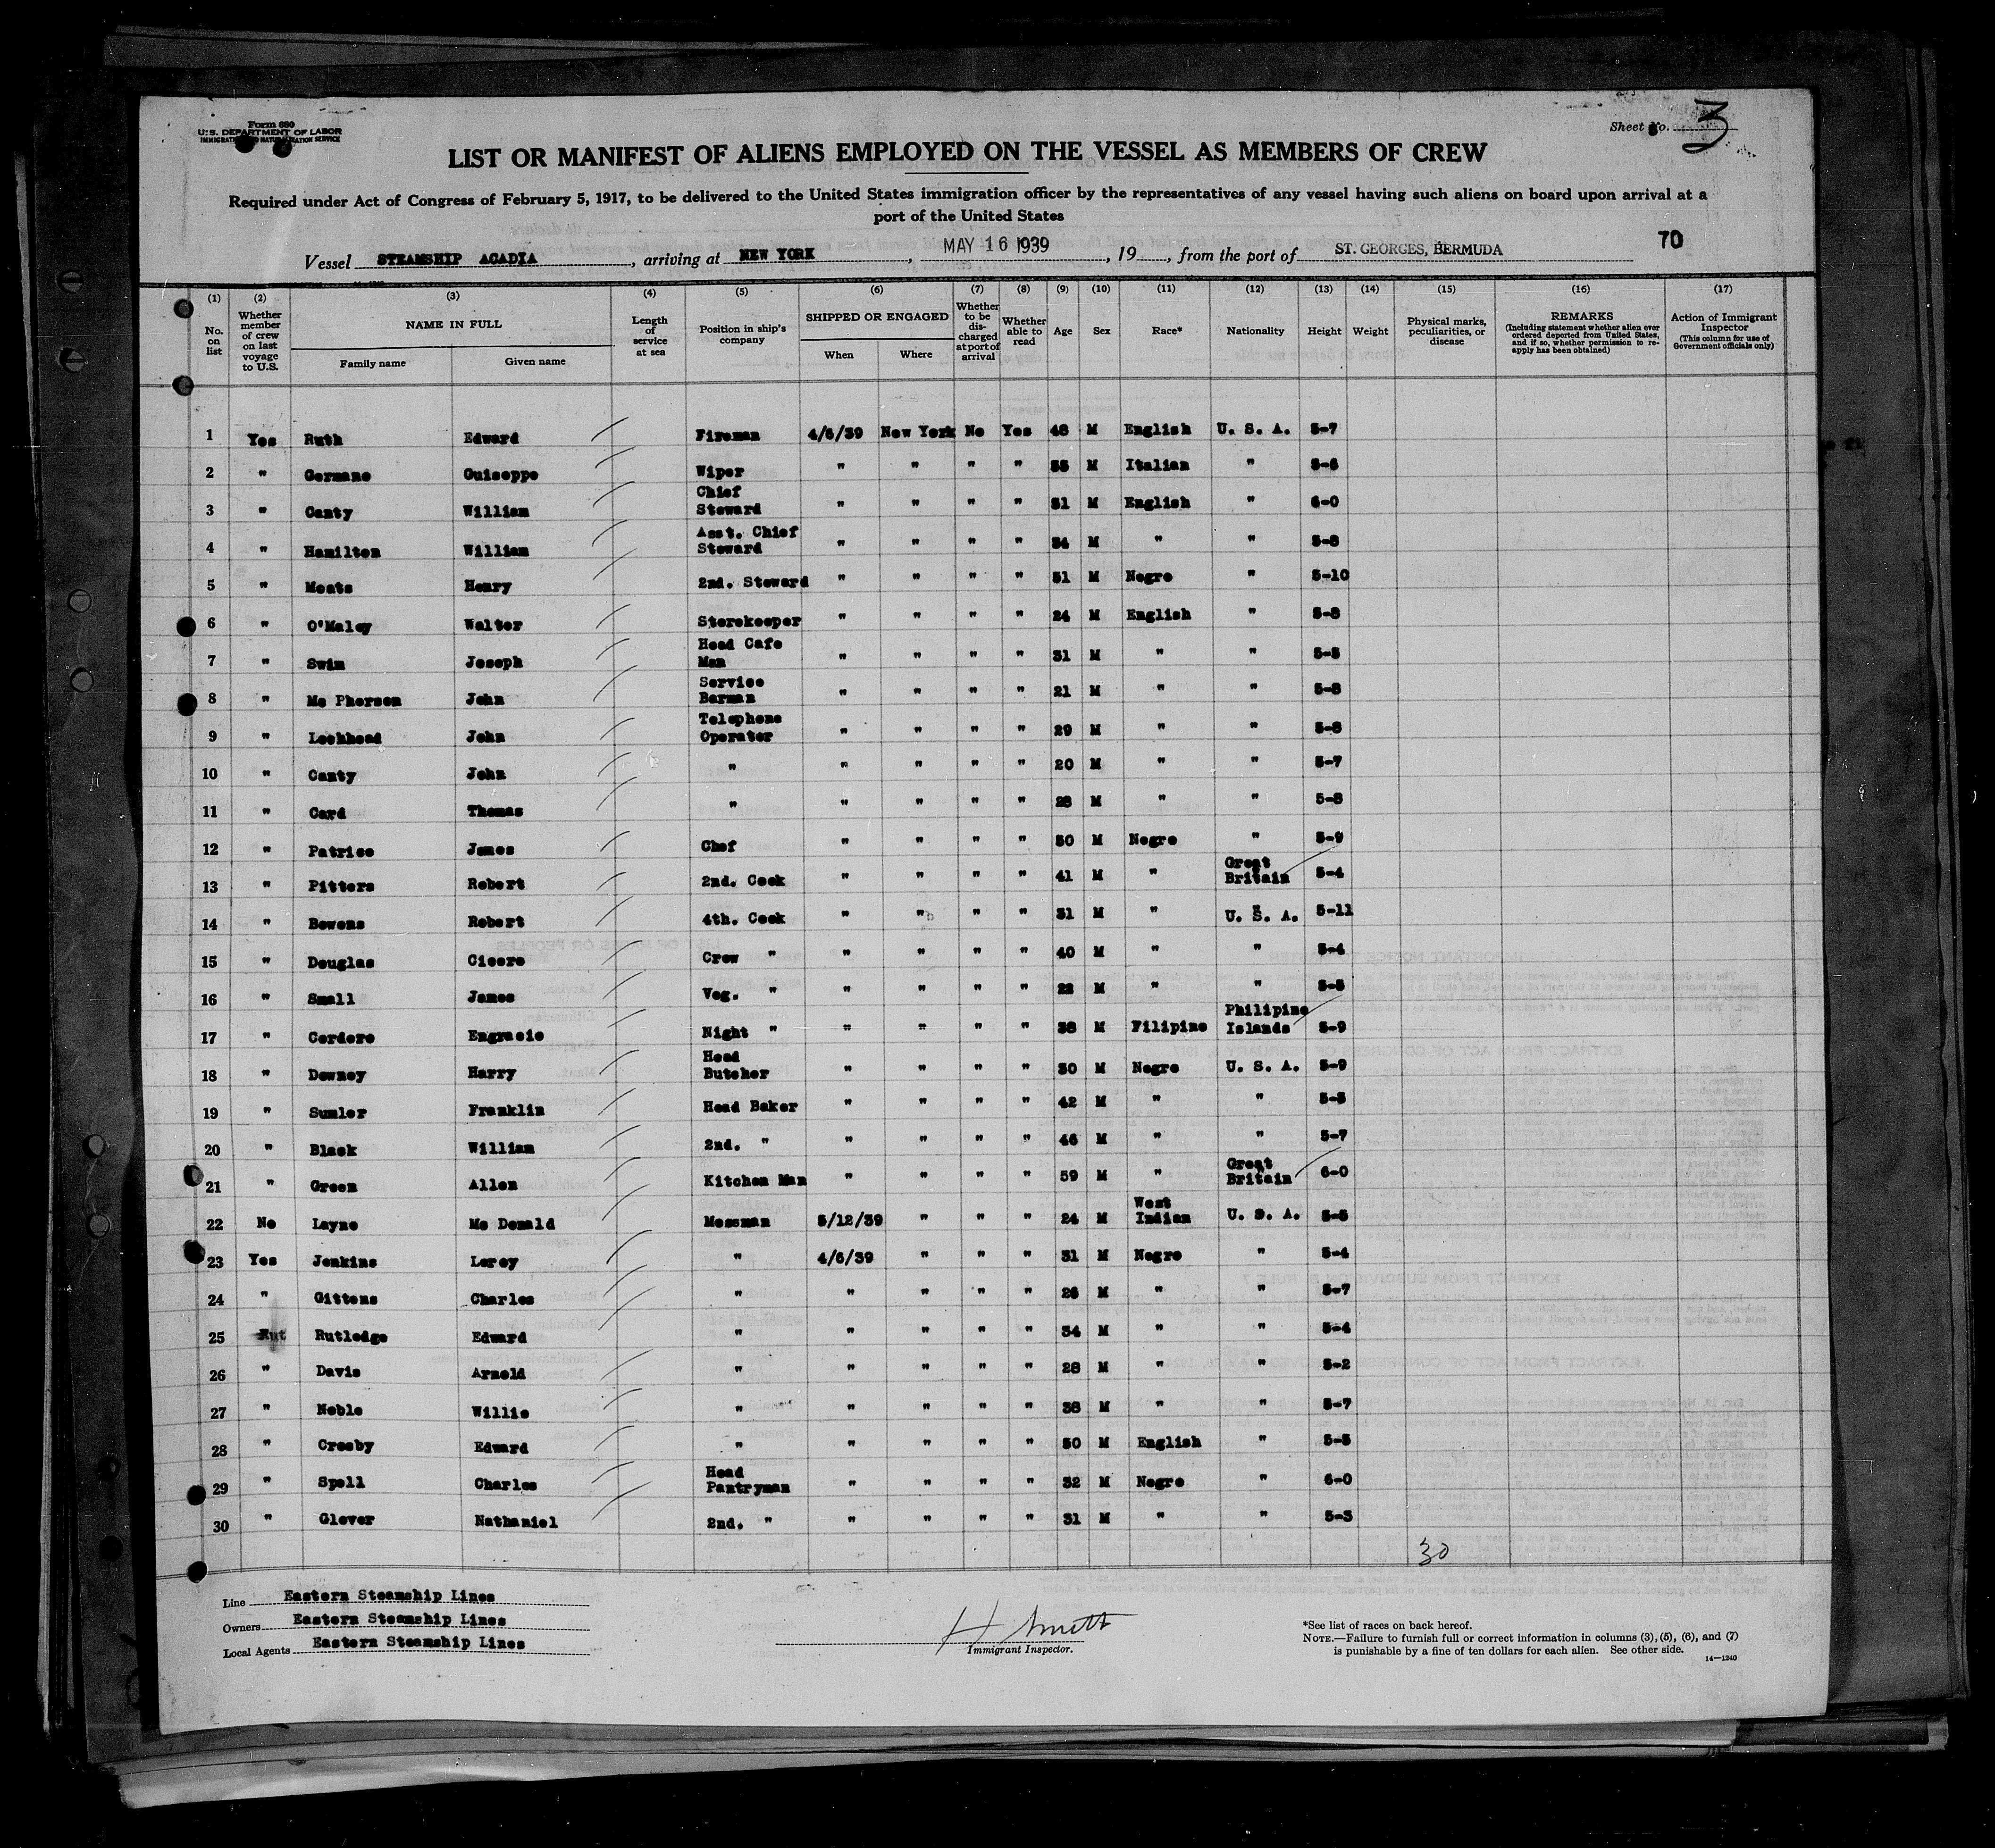 Form 680
U.S. DEPARTMENT OF LABOR
IMMIGRATION AND NATURALIZATION SERVICE
Sheet No. 3
LIST OR MANIFEST OF ALIENS EMPLOYED ON THE VESSEL AS MEMBERS OF CREW
Required under Act of Congress of February 5, 1917, to be delivered to the United States immigration officer by the representatives of any vessel having such aliens on board upon arrival at a
port of the United States
Vessel STEAMSHIP ACADIA, arriving at NEW YORK, MAY 16 1939, 19, from the port of ST. GEORGES, BERMUDA 70
(1) No. on list
(2) Whether member of crew on last voyage to U.S.
(3) NAME IN FULL Family name Given name
(4) Length of service at sea
(5) Position in ship's company
(6) SHIPPED OR ENGAGED When Where
(7) Whether to be discharged at port of arrival
(8) Whether able to read
(9) Age
(10) Sex
(11) Race*
(12) Nationality
(13) Height
(14) Weight
(15) Physical marks, peculiarities, or disease
(16) REMARKS (Including statement whether alien ever ordered deported from United States, and if so, whether permission to reapply has been obtained)
(17) Action of Immigrant Inspector (This column for use of Government officials only)
1 Yes Ruth Edward Fireman 4/6/39 New York No Yes 48 M English U. S. A. 5-7
2 " Germano Guiseppe Wiper " " " " 55 M Italian " 5-6
3 " Canty William Chief Steward " " " " 51 M English " 6-0
4 " Hamilton William Asst. Chief Steward " " " " 34 M " " 5-8
5 " Moats Henry 2nd. Steward " " " " 51 M Negro " 5-10
6 " O'Maley Walter Storekeeper " " " " 24 M English " 5-8
7 " Swim Joseph Head Cafe Man " " " " 31 M " " 5-5
8 " Mc Pherson John Service Barman " " " " 21 M " " 5-8
9 " Lochhead John Telephone Operator " " " " 29 M " " 5-8
10 " Canty John " " " " " 20 M " " 5-7
11 " Card Thomas " " " " " 28 M " " 5-8
12 " Patrice James Chef " " " " 50 M Negro " 5-9
13 " Pitters Robert 2nd. Cook " " " " 41 M " Great Britain 5-4
14 " Bowens Robert 4th. Cook " " " " 31 M " U. S. A. 5-11
15 " Douglas Cicero Crew " " " " " 40 M " " 5-4
16 " Small James Veg. " " " " " 22 M " " 5-5
17 " Cordero Engracio Night " " " " " 38 M Filipino Philipine Islands 5-9
18 " Downey Harry Head Butcher " " " " 50 M Negro U. S. A. 5-9
19 " Sumler Franklin Head Baker " " " " 42 M " " 5-5
20 " Black William 2nd. " " " " " 46 M " " 5-7
21 " Green Allen Kitchen Man " " " " 59 M " Great Britain 6-0
22 No Layne Mc Donald Messman 5/12/39 " " " 24 M West Indian U. S. A. 5-5
23 Yes Jenkins Leroy " 4/6/39 " " " 31 M Negro " 5-4
24 " Gittens Charles " " " " " 26 M " " 5-7
25 Rut Rutledge Edward " " " " " 34 M " " 5-4
26 " Davis Arnold " " " " " 28 M " " 5-2
27 " Noble Willie " " " " " 38 M " " 5-7
28 " Crosby Edward " " " " " 50 M English " 5-5
29 " Spell Charles Head Pantryman " " " " 32 M Negro " 6-0
30 " Glover Nathaniel 2nd. " " " " " 31 M " " 5-3
30
Line Eastern Steamship Lines
Owners Eastern Steamship Lines
Local Agents Eastern Steamship Lines
Immigrant Inspector.
*See list of races on back hereof.
NOTE.—Failure to furnish full or correct information in columns (3), (5), (6), and (7)
is punishable by a fine of ten dollars for each alien. See other side.
14—1240